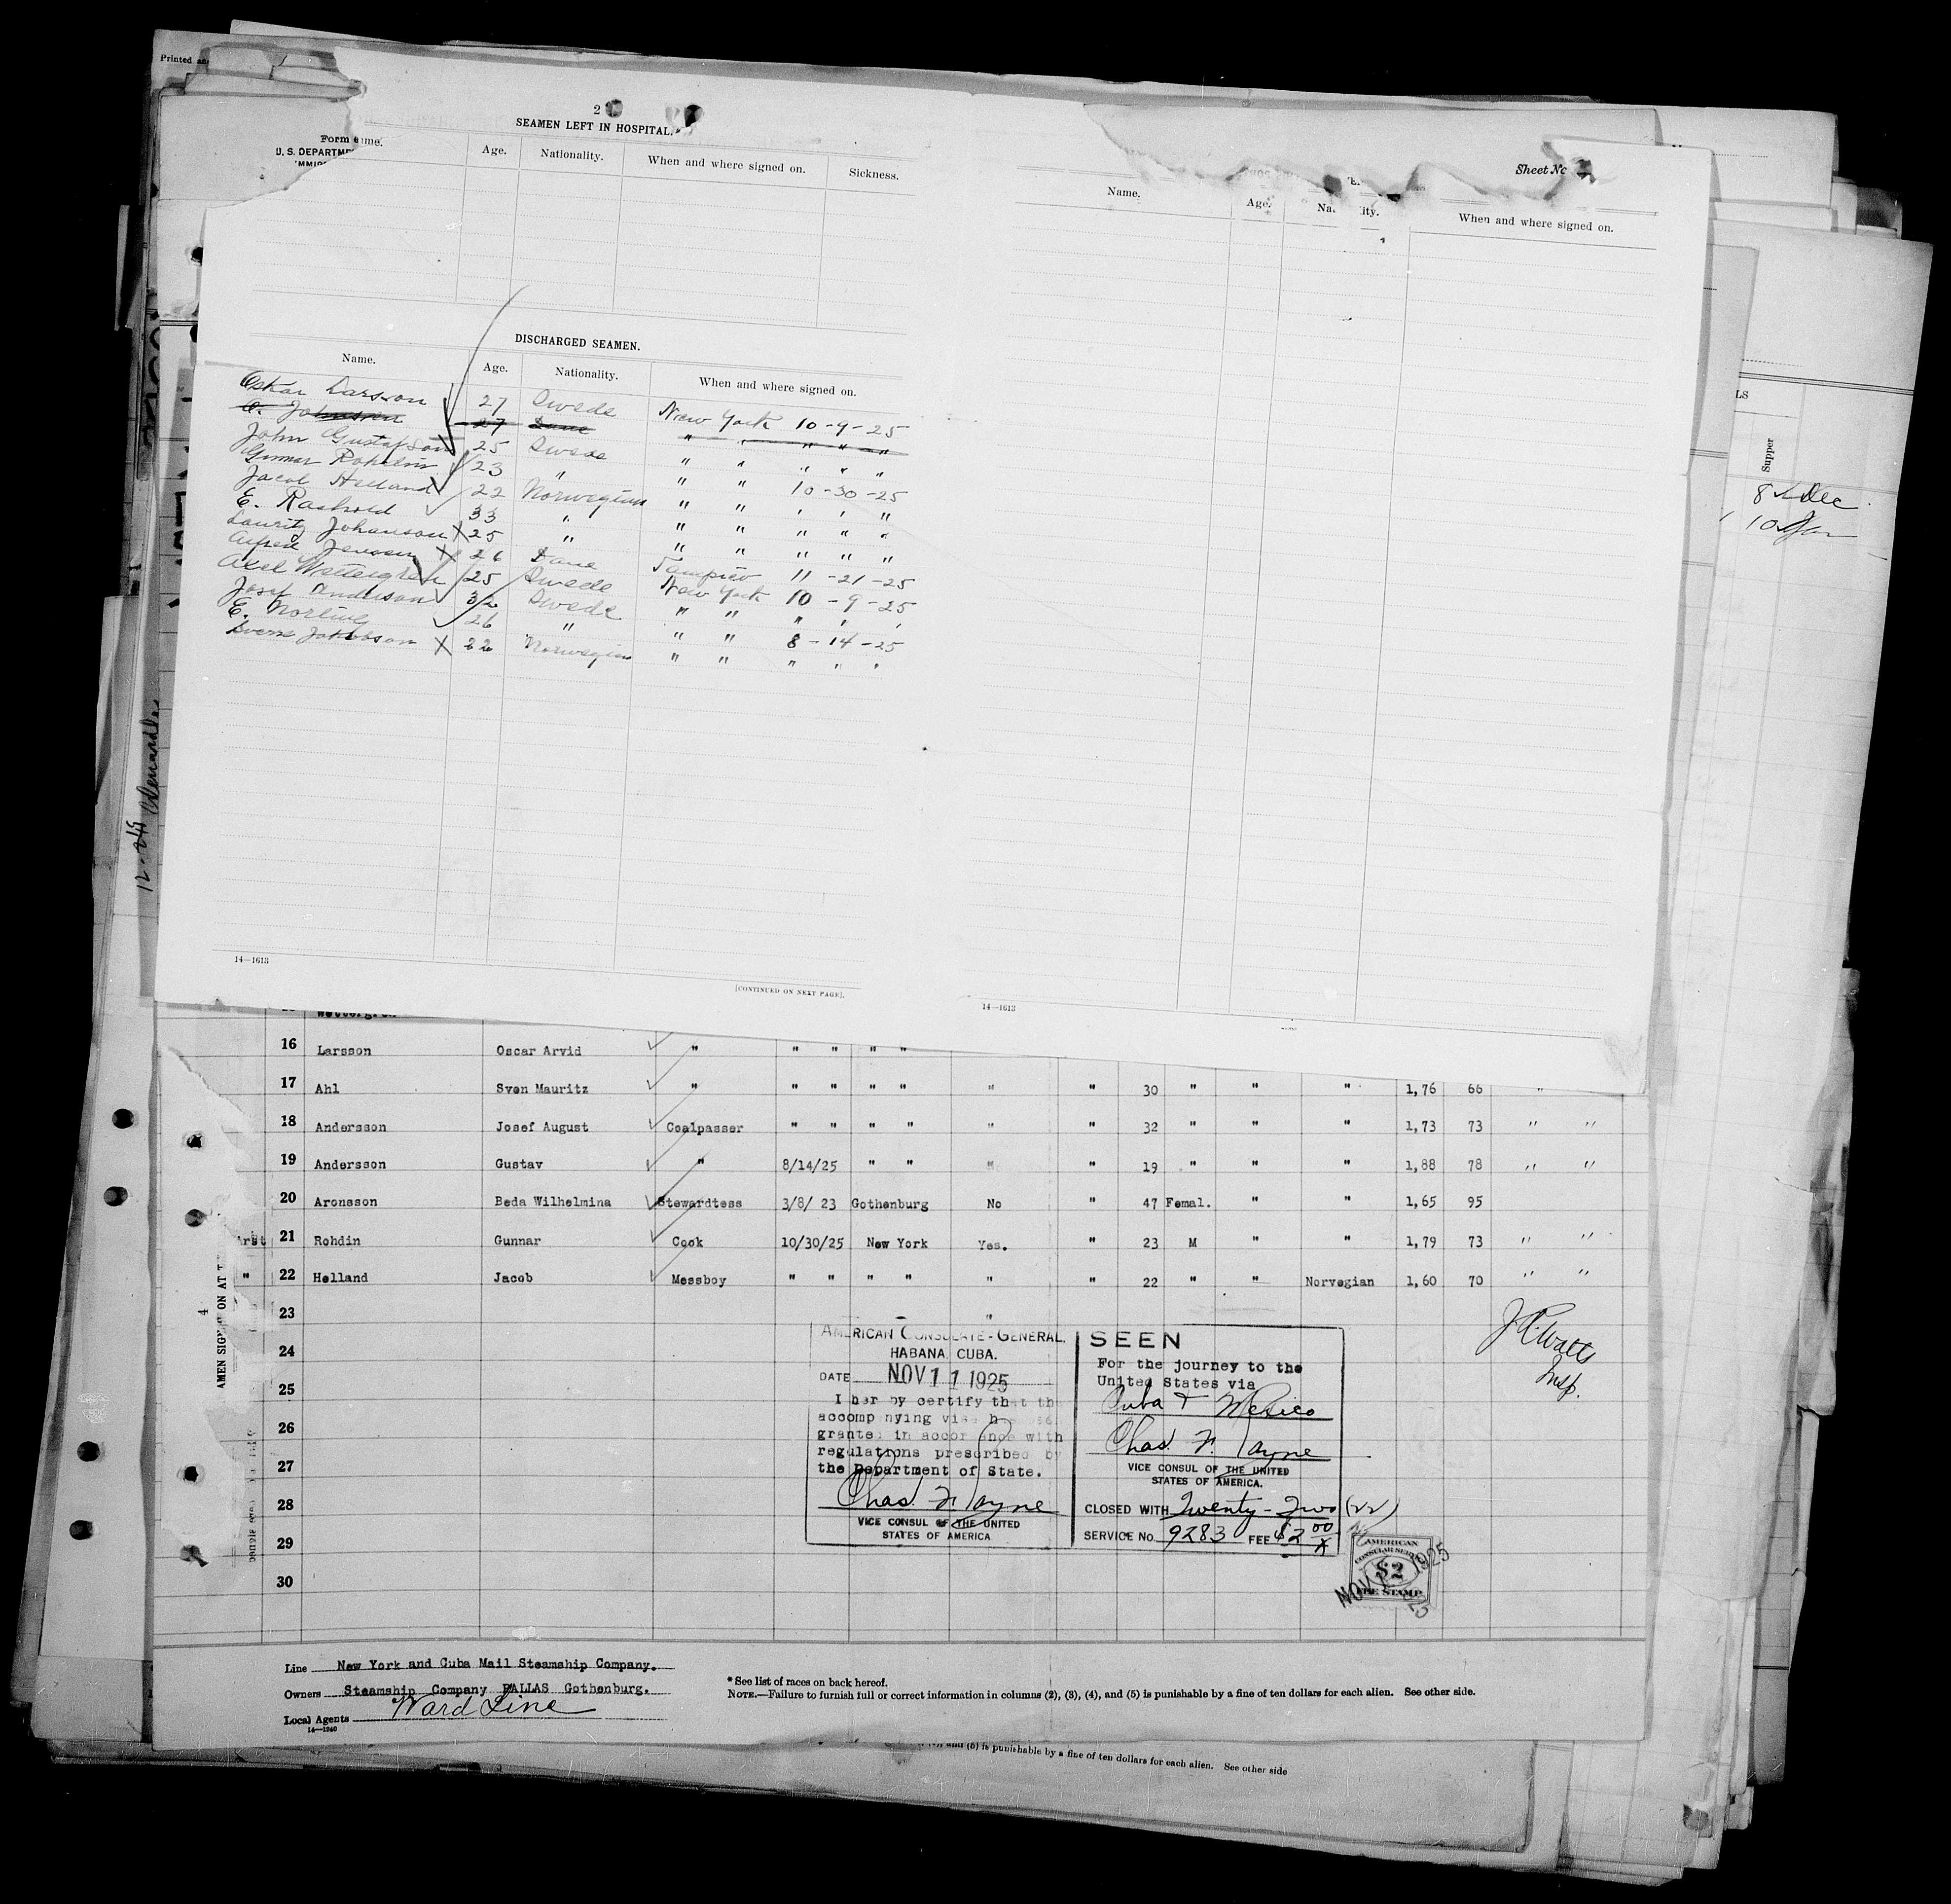 Printed
Form
U. S. DEPARTM
2
SEAMEN LEFT IN HOSPITAL.
Age. Nationality. When and where signed on. Sickness.
Sheet No
Name. Age. Na ity. When and where signed on.
DISCHARGED SEAMEN.
Name. Age. Nationality. When and where signed on.
Oskar Larsson 27 Swede New York 10-9-25
E. Johnsson 27 Dane " " " " "
John Gustafsson 25 Swede " " " " "
Gunnar Rohdin 23 " " " 10-30-25
Jacob Helland 22 Norwegian " " " " "
E. Rashold 33 " " " " " "
Lauritz Johanson X 25 " " " " " "
Alfred Jensen X 26 Dane Tampico 11-21-25
Axel Wettergren 25 Swede New York 10-9-25
Josef Anderson 32 Swede " " " " "
E. Norling 26 " " " 8-14-25
Sverre Jakobson X 22 Norwegian " " " " "
14—1613
[CONTINUED ON NEXT PAGE].
14—1613
LS
Supper
8 Dec
10 Jan
12-24
Wettergren
16 Larsson Oscar Arvid " " " " "
17 Ahl Sven Mauritz " " " " " " " 30 " " " 1,76 66 "
18 Andersson Josef August Coalpasser " " " " " " 32 " " " 1,73 73 " "
19 Andersson Gustav " 8/14/25 " " " " 19 " " " 1,88 78 " "
20 Aronsson Beda Wilhelmina Stewardtess 3/8/ 23 Gothenburg No " 47 Femal. " " 1,65 95
21 Rohdin Gunnar Cook 10/30/25 New York Yes. " 23 M " " 1,79 73 " "
" 22 Helland Jacob Messboy " " " " " " 22 " " Norwegian 1,60 70 " "
23 "
24
25
26
27
28
29
30
4
AMEN SIGN ON AT T
J.C. Watts
Insp.
AMERICAN CONSULATE-GENERAL,
HABANA, CUBA.
DATE NOV 11 1925
I her by certify that th
accomp nying vis h
grante in accor ance with
regulations prescribed by
the Department of State.
Chas. F. Payne
VICE CONSUL OF THE UNITED
STATES OF AMERICA
SEEN
For the journey to the
United States via
Cuba & Mexico
Chas. F. Payne
VICE CONSUL OF THE UNITED
STATES OF AMERICA.
CLOSED WITH Twenty-Two (22)
SERVICE No. 9283 FEE $2 00
AMERICAN
CONSULAR SERVICE
$2
FEE STAMP
NOV 1925
Line New York and Cuba Mail Steamship Company.
Owners Steamship Company PALLAS Gothenburg.
Local Agents Ward Line
14—1240
* See list of races on back hereof.
NOTE.—Failure to furnish full or correct information in columns (2), (3), (4), and (5) is punishable by a fine of ten dollars for each alien. See other side.
and (5) is punishable by a fine of ten dollars for each alien. See other side